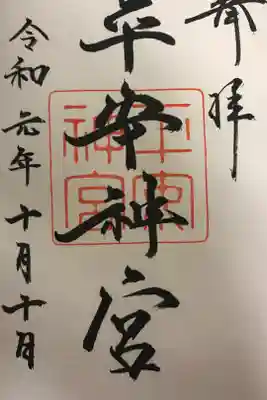 奉拝
平安神宮
令和元年十月十日
平安神宮